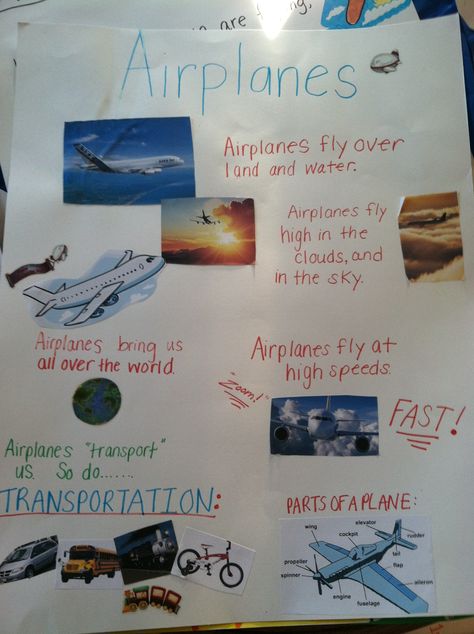 are flying,
Airplanes
Airplanes fly over
land and water.
Airplanes fly
high in the
clouds, and
in the sky.
Airplanes bring us
all over the world.
Airplanes fly at
high speeds.
"Zoom!"
FAST!
Airplanes "transport"
us. So do......
TRANSPORTATION:
PARTS OF A PLANE:
wing
cockpit
elevator
rudder
tail
flap
aileron
propeller
spinner
engine
fuselage